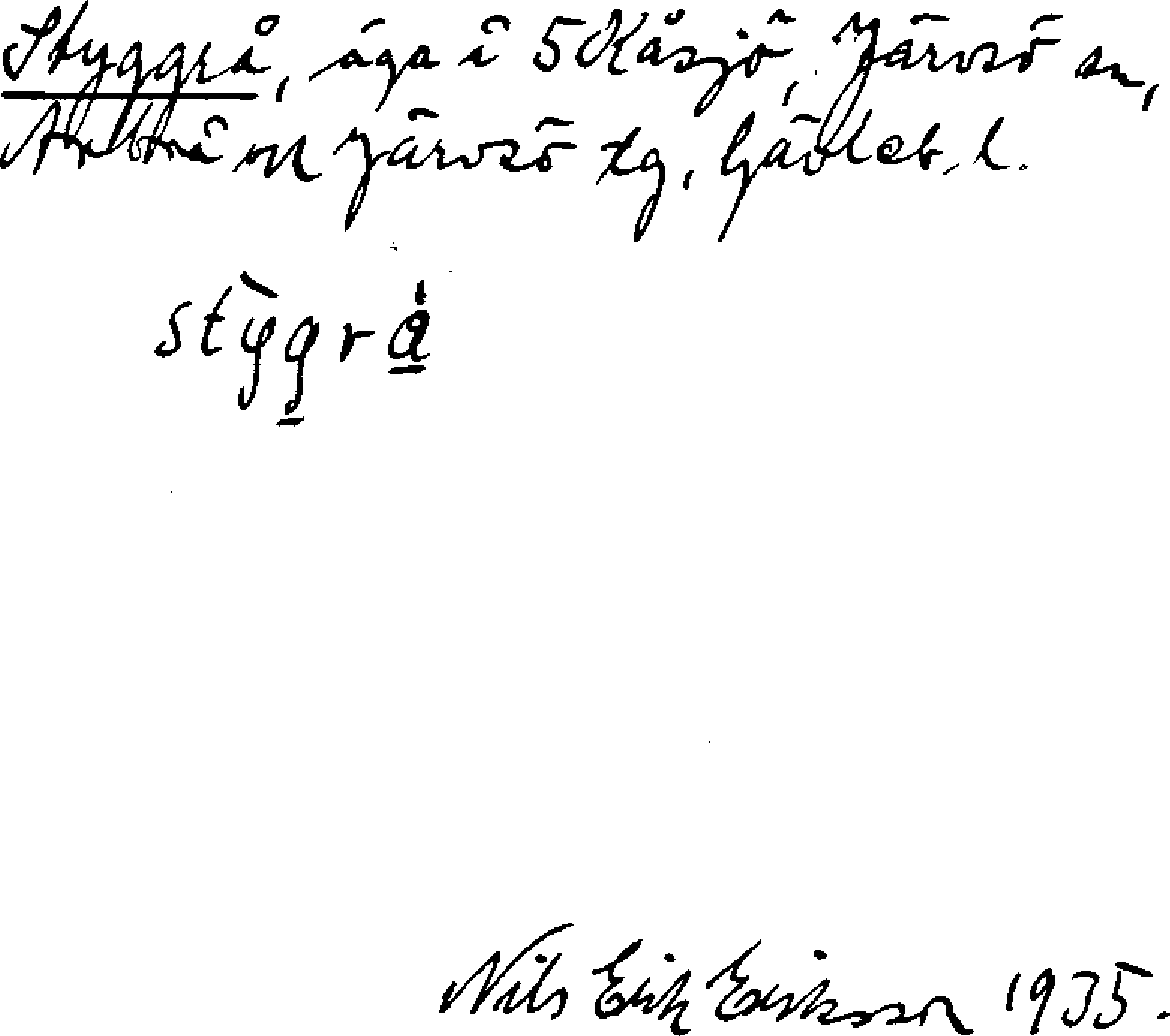 Styggrå, äga i 5 Kåsjö, Järvsö sn,
Arbrå och Järvsö tg, Gävleb. l.
stỳg̲rá̲
Nils Erik Eriksson 1935.